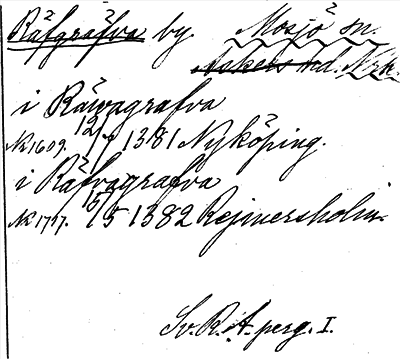 Räfgräfva by. Mosjö sn.
Askers hd. Nrk.
i Räwagrafva
Nk 1609. 12/7 1381 Nyköping.
i Räfvagrafva
Nk 1757. 15/5 1382 Rejmersholm.
Sv. R. A. perg. I.